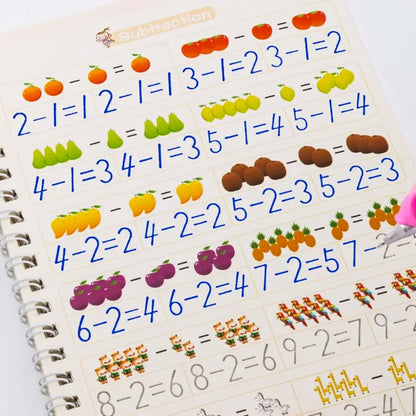 Subtraction
2-1=1 2-1=1 3-1=2 3-1=2
4-1=3 4-1=3 5-1=4 5-1=4
4-2=2 4-2=2 5-2=3 5-2=3
6-2=4 6-2=4 7-2=5 7-2
8-2=6 8-2=6 9-2=7 9-2